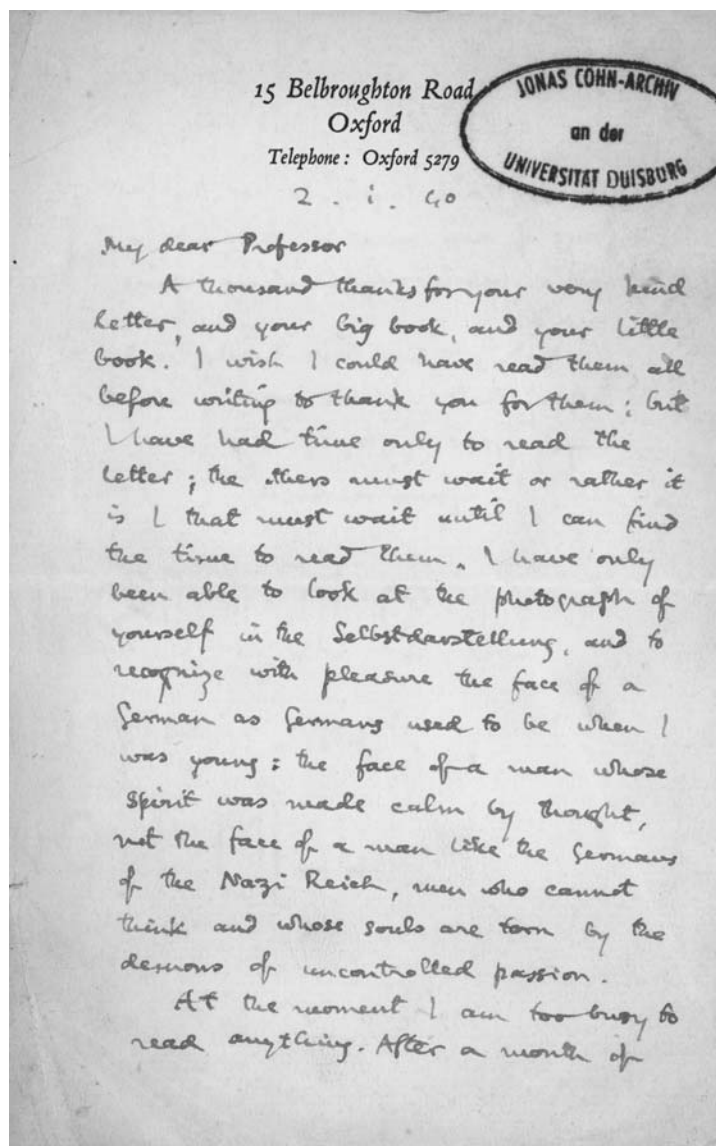 15 Belbroughton Road
Oxford
Telephone: Oxford 5279
JONAS COHN-ARCHIV
an der
UNIVERSITÄT DUISBURG
2 . i . 40
My dear Professor
A thousand thanks for your very kind
letter, and your big book, and your little
book. I wish I could have read them all
before writing to thank you for them; but
I have had time only to read the
letter; the others must wait or rather it
is I that must wait until I can find
the time to read them. I have only
been able to look at the photograph of
yourself in the Selbstdarstellung, and to
recognize with pleasure the face of a
German as Germans used to be when I
was young: the face of a man whose
spirit was made calm by thought,
not the face of a man like the Germans
of the Nazi Reich, men who cannot
think and whose souls are torn by the
demons of uncontrolled passion.
At the moment I am too busy to
read anything. After a month of